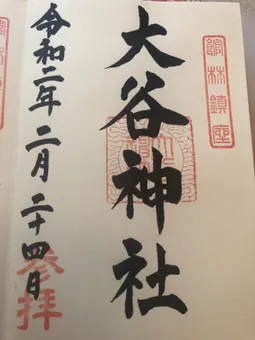 鎮座
大谷神社
令和二年二月二十四日
参拝